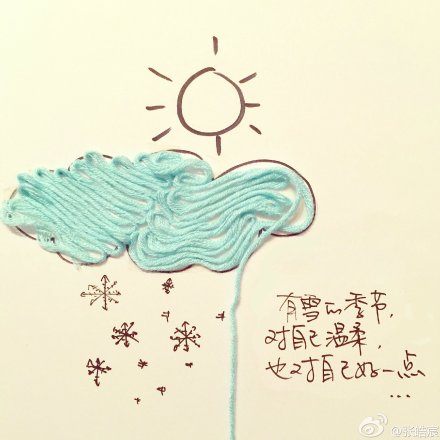 有雪的季节,
对自己温柔,
也对自己好一点
...
@张皓宸